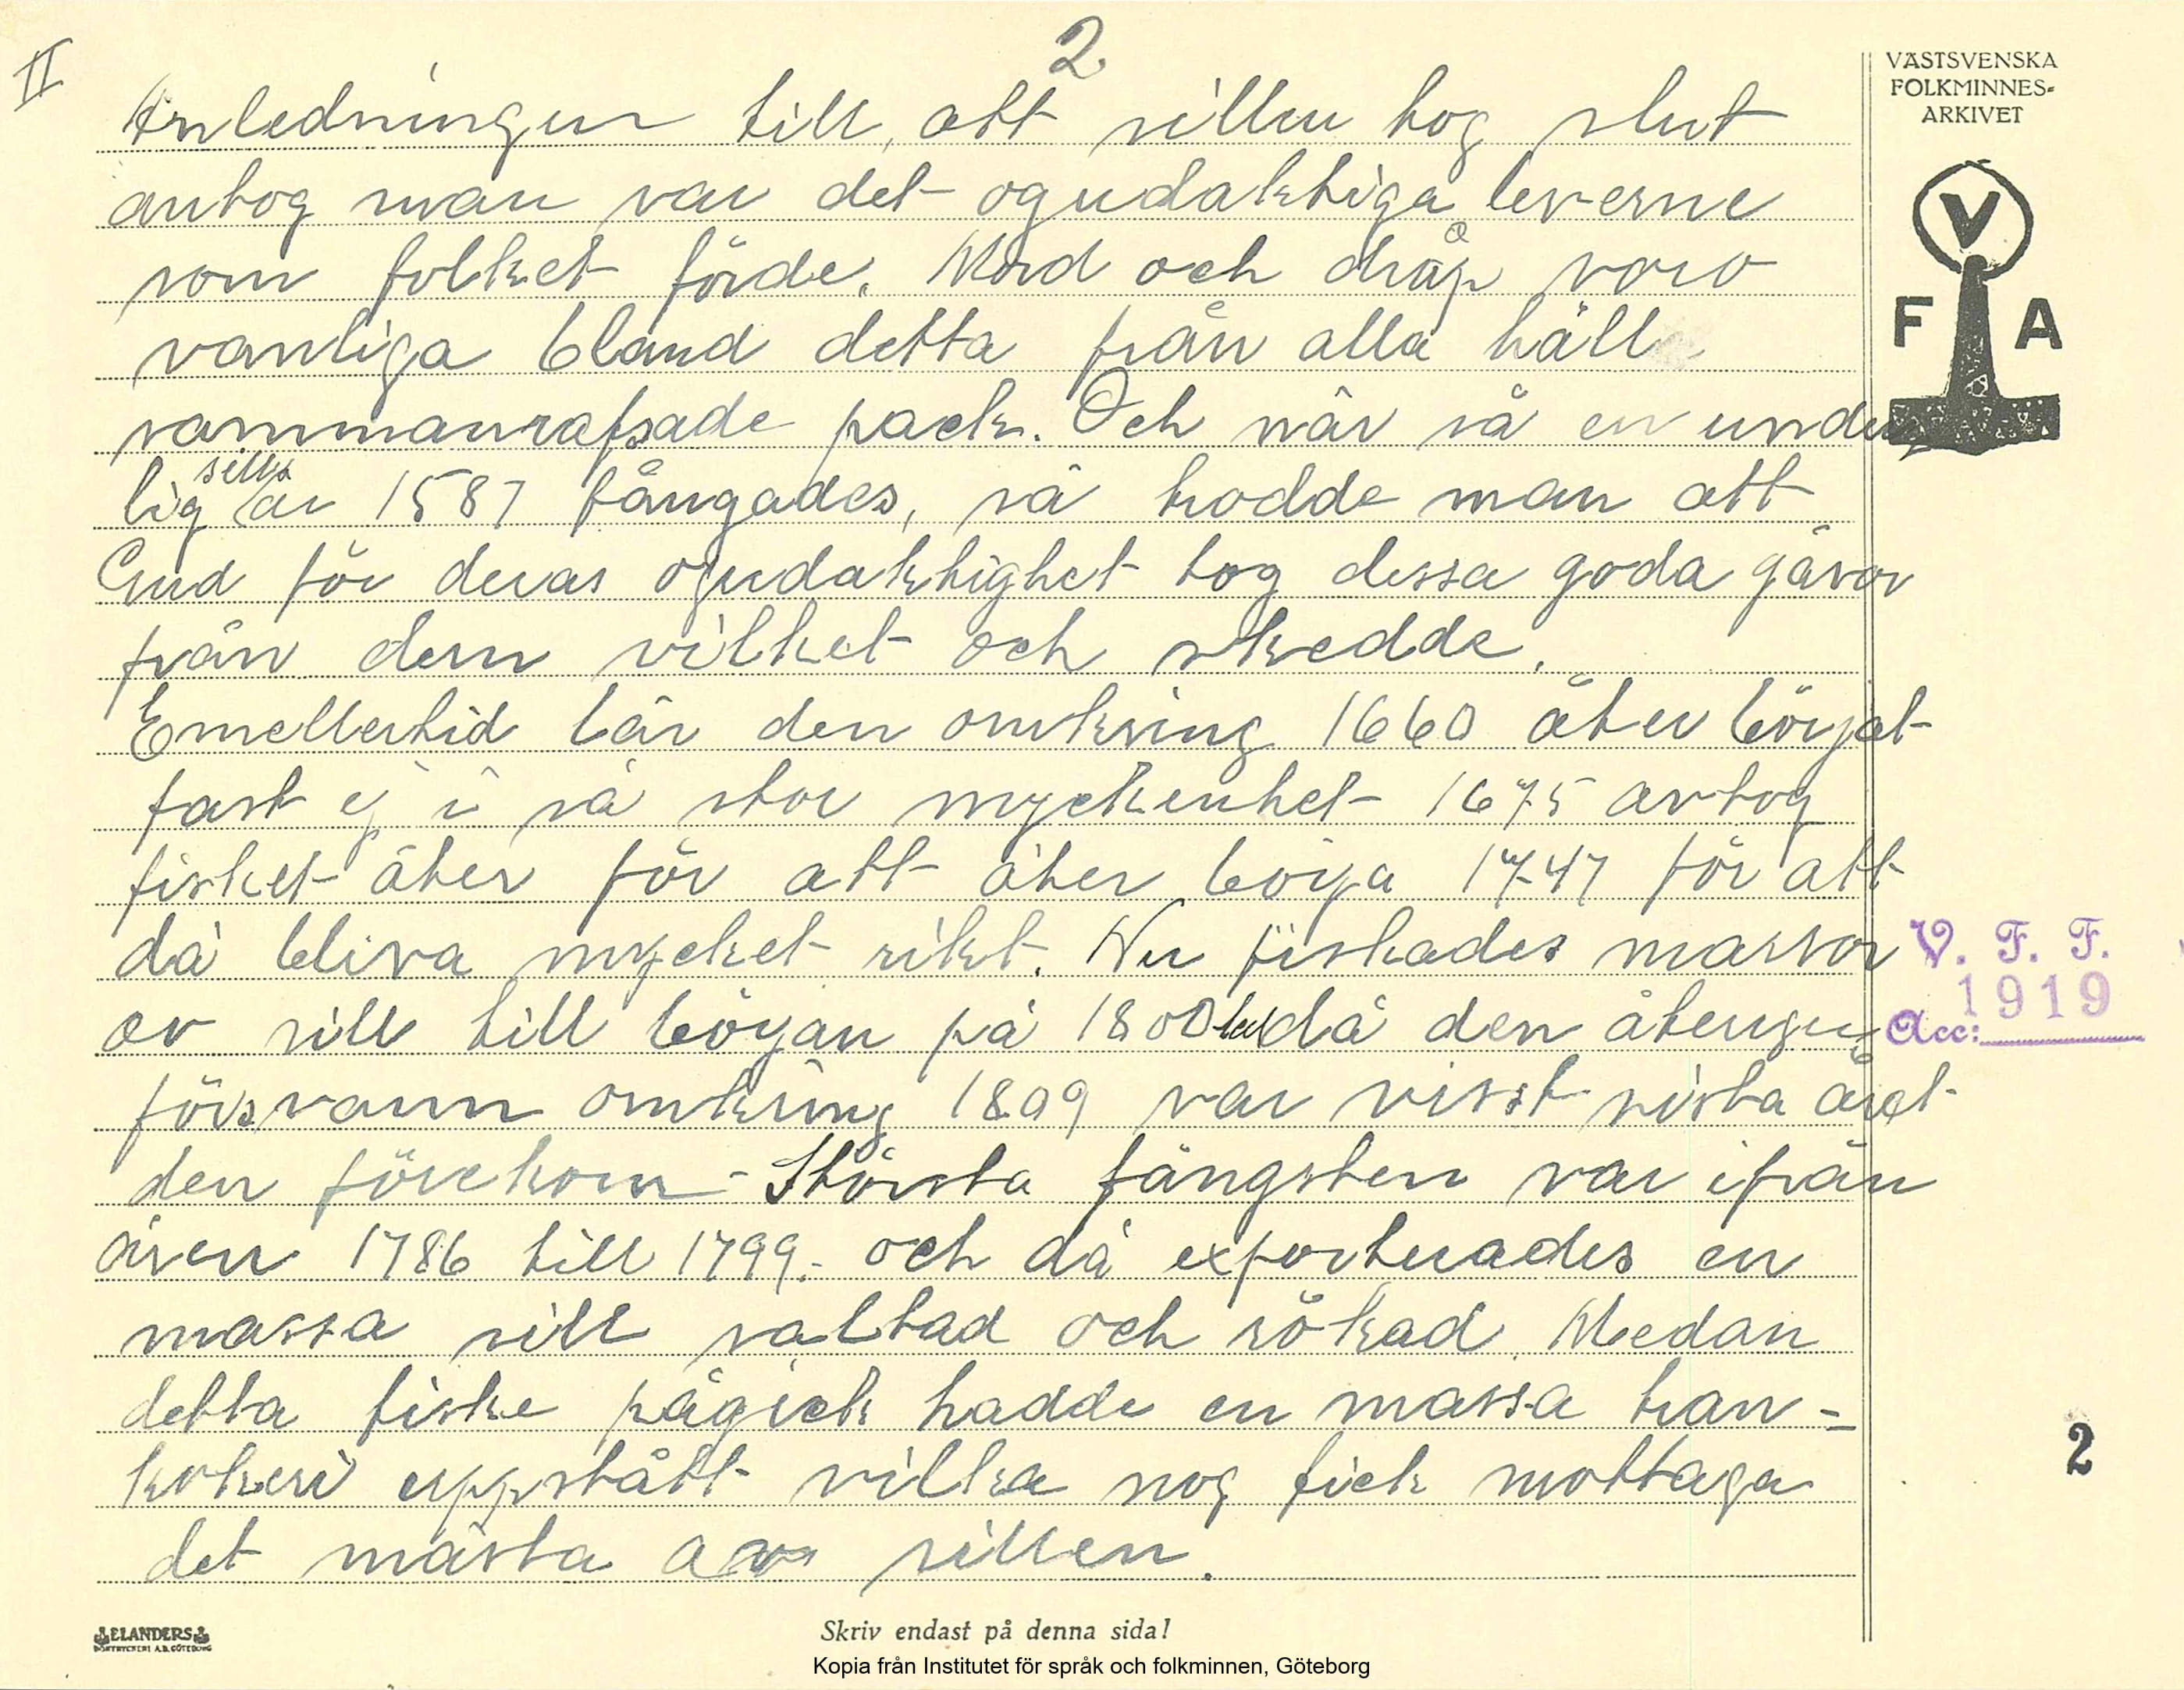 II
2
Anledningen till, att sillen tog slut
antog man var det ogudaktiga leverne
som folket förde. Mord och dråp voro
vanliga bland detta från alla håll
sammanrafsade pack. Och när så en under
lig sills år 1587 fångades, så trodde man att
Gud för deras ogudaktighet tog dessa goda gåvor
från dem vilket och skedde.
Emellertid lär den omkring 1660 åter börjat
fast ej i så stor myckenhet 1675 avtog
fisket åter för att åter börja 1747 för att
då bliva mycket rikt. Nu fiskades massor
av sill till början på 1800 tal då den återigen
försvann omkring 1809 var visst sista året
den förekom - Största fångsten var ifrån
åren 1786 till 1799.- och då exporterades en
massa sill saltad och rökad. Medan
detta fiske pågick hadde en massa tran-
kokeri uppstått vilka nog fick mottaga
det mästa av sillen.
VÄSTSVENSKA
FOLKMINNES-
ARKIVET
V
F A
V. F. F.
1919
Acc:
2
ELANDERS
BOKTRYCKERI A.B. GÖTEBORG
Skriv endast på denna sida!
Kopia från Institutet för språk och folkminnen, Göteborg